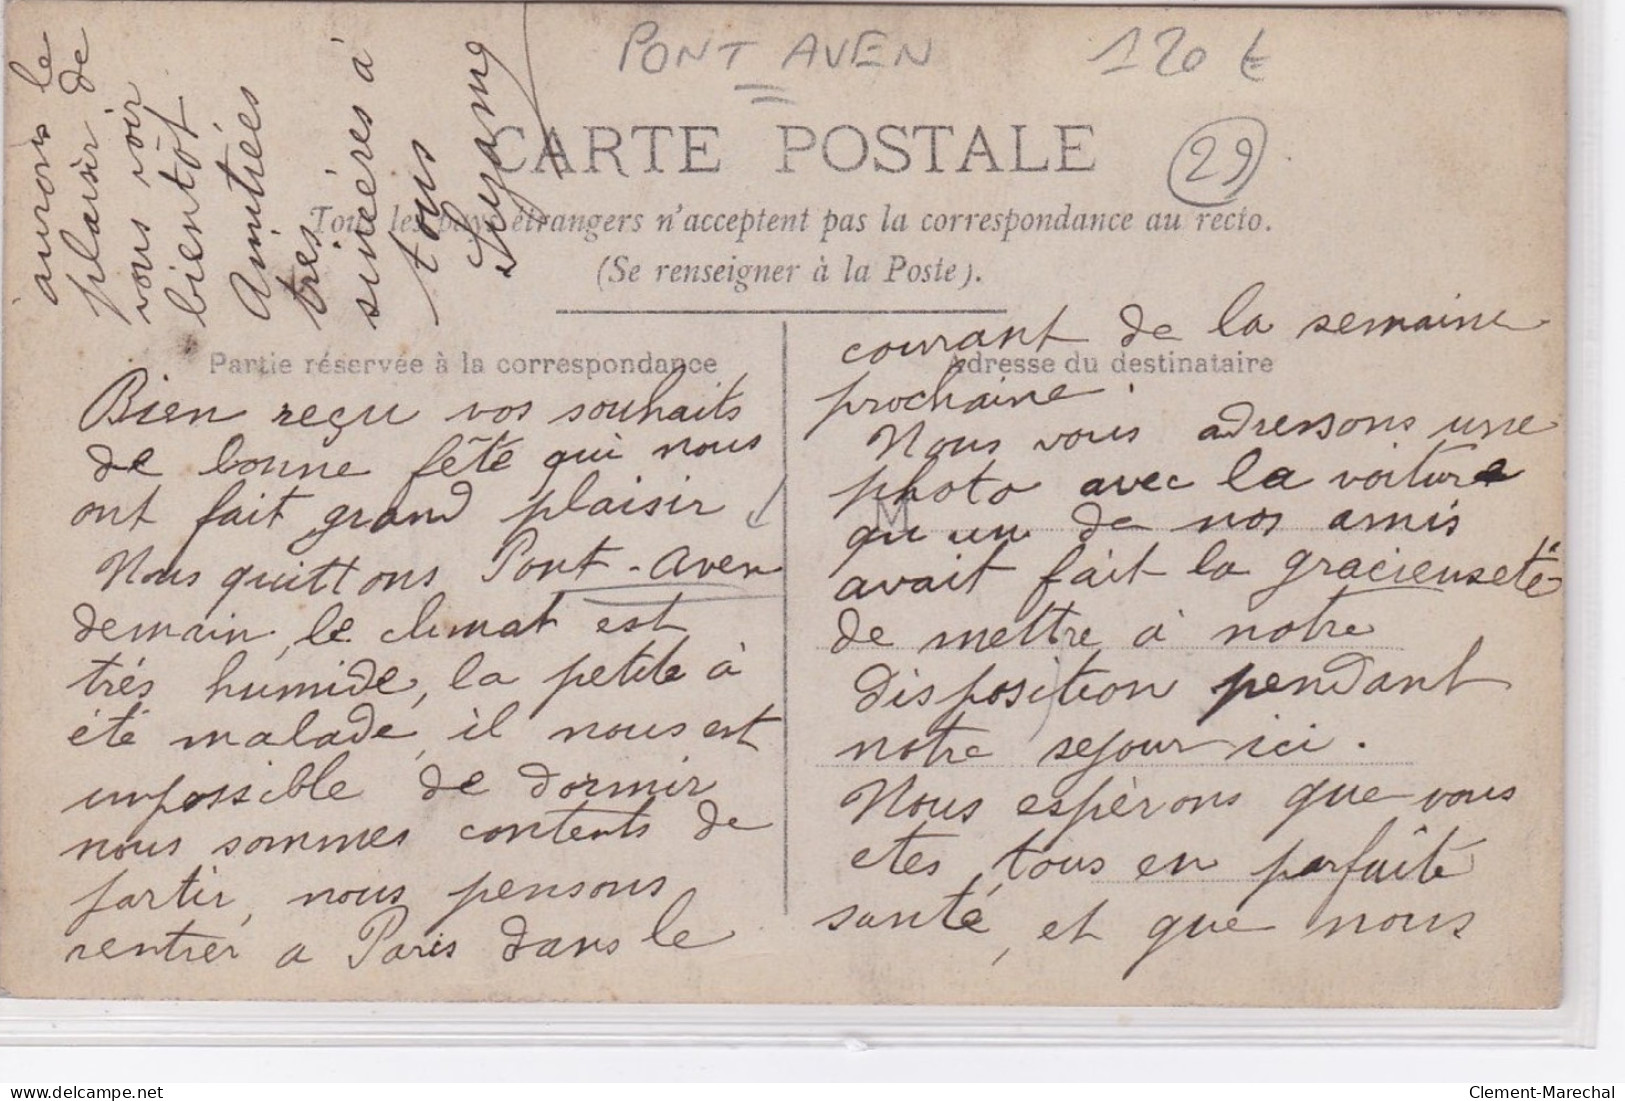 PONT AVEN
120 €
29
CARTE POSTALE
Tous les pays étrangers n'acceptent pas la correspondance au recto.
(Se renseigner à la Poste).
Partie réservée à la correspondance
Adresse du destinataire
Bien reçu vos souhaits
de bonne fête qui nous
ont fait grand plaisir
Nous quittons Pont-Aven
demain, le climat est
trés humide, la petite à
été malade, il nous est
impossible de dormir
nous sommes contents de
partir, nous pensons
rentrer a Paris dans le
courant de la semaine
prochaine.
Nous vous adressons une
photo avec la voiture
M
qu un de nos amis
avait fait la gracieuseté
de mettre à notre
disposition pendant
notre sejour ici.
Nous espèrons que vous
etes tous en parfaite
santé, et que nous
aurons le
plaisir de
vous voir
bientôt
Amitiées
trés
sincéres à
tous
delcampe.net
Clement-Marechal